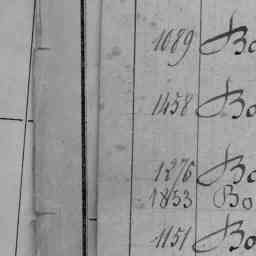 1089 Bo
1458 Bo
1276 Bo
1833 Bo
1151 Bo